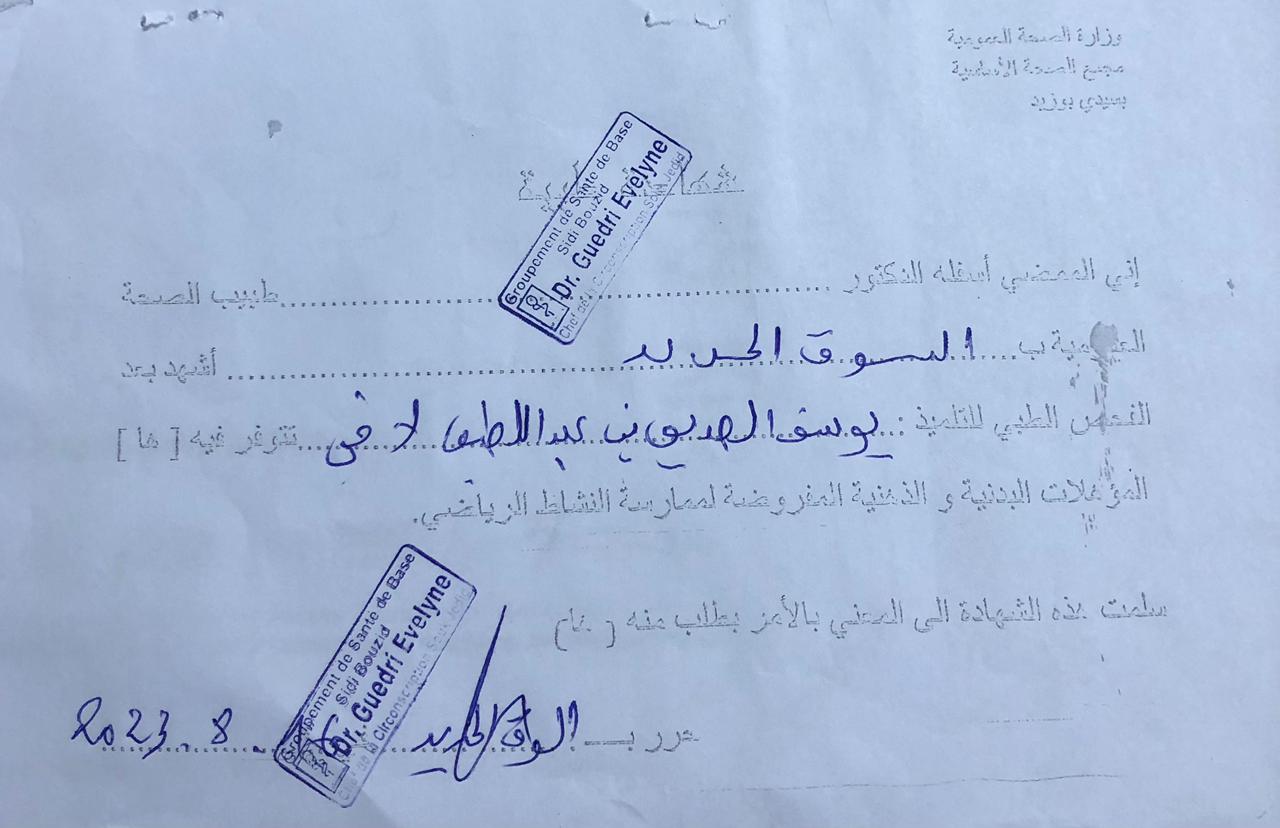 وزارة الصحة العمومية
مجمع الصحة الأساسية
بسيدي بوزيد
Groupement de Santé de Base
Sidi Bouzid
Dr. Guedri Evelyne
Chef de la Circonscription Souk Jedid
إني الممضي أسفله الدكتور ........ طبيب الصحة
العمومية ب..... السوق الجديد ........ أشهد بعد
الفحص الطبي للتلميذ : يوسف الصديق بن عبد اللطيف لافي ... تتوفر فيه [ ها ]
المؤهلات البدنية و الذهنية المفروضة لممارسة النشاط الرياضي.
سلمت هذه الشهادة الى المعني بالأمر بطلب منه ( ها )
Groupement de Santé de Base
Sidi Bouzid
Dr. Guedri Evelyne
Chef de la Circonscription Souk Jedid
حرر بـ السوق الجديد 8 . 2023